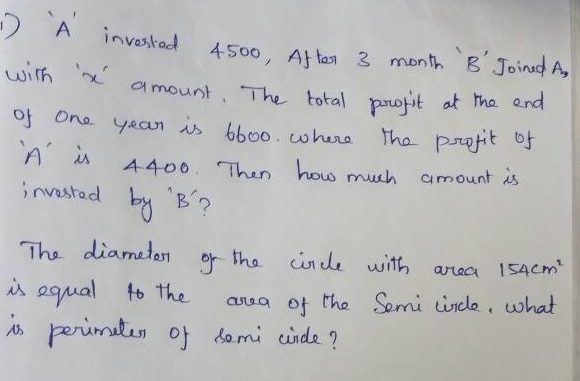 1) 'A' invested 4500, After 3 month 'B' Joined A,
with 'x' amount. The total profit at the end
of one year is 6600. where The profit of
'A' is 4400. Then how much amount is
invested by 'B'?
The diameter of the circle with area 154cm²
is equal to the area of the Semi circle. what
is perimeter of semi circle?